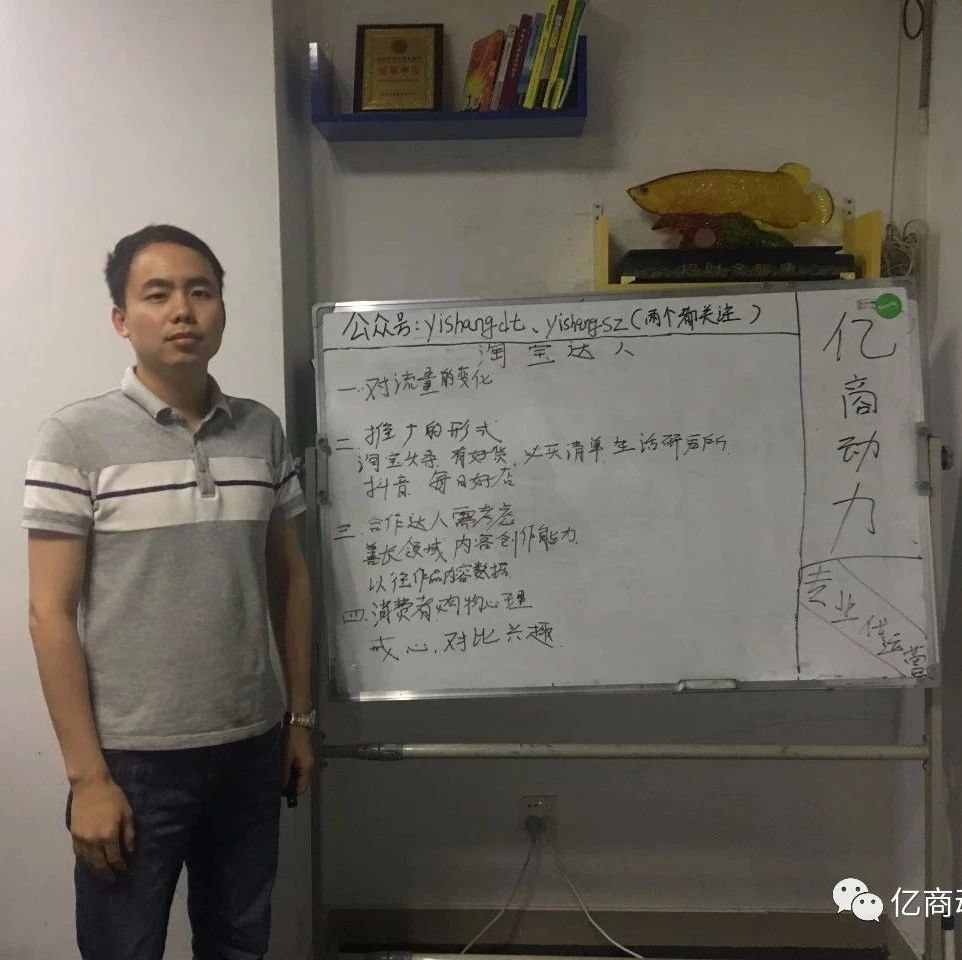 理事单位
招财金龙鱼
公众号:yishangdt、yishangsz(两个都关注)
淘宝达人
一.对流量的变化
二 推广的形式
淘宝头条 有好货、必买清单 生活研究所
抖音 每日好店
三 合作达人需考虑
善长领域 内容创作能力
以往作品内容数据
四.消费者购物心理
戒心,对比 兴趣
亿商动力
专业代运营
亿商